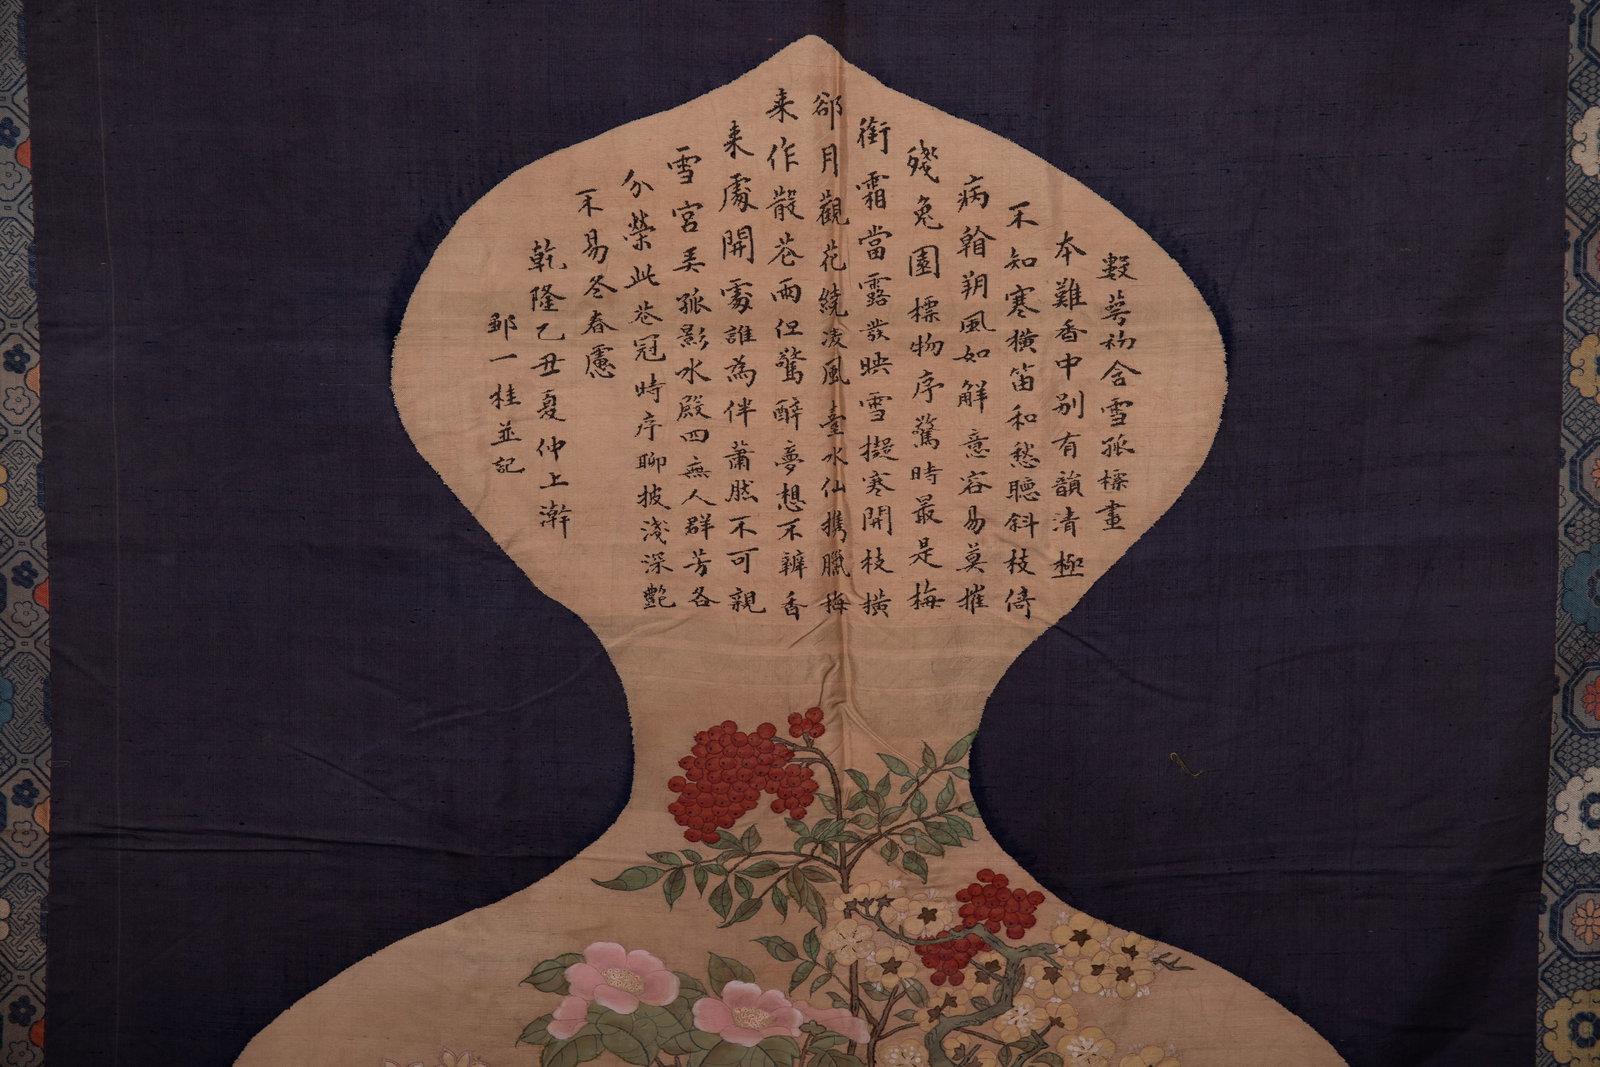 數萼初含雪孤標畫
本難香中别有韻清極
不知寒横笛和愁聽斜枝倚
病翰朔風如解意容易莫摧
殘兔園標物序驚時最是梅
銜霜當露發映雪擬寒開枝横
郤月觀花繞凌風臺水仙攜臘梅
来作散花雨但驚醉夢想不辨香
来處開處誰為伴蕭然不可親
雪宮弄孤影水殿四無人群芳各
分榮此花冠時序聊披淺深艷
不易冬春慮
乾隆乙丑夏仲上澣
鄒一桂並記